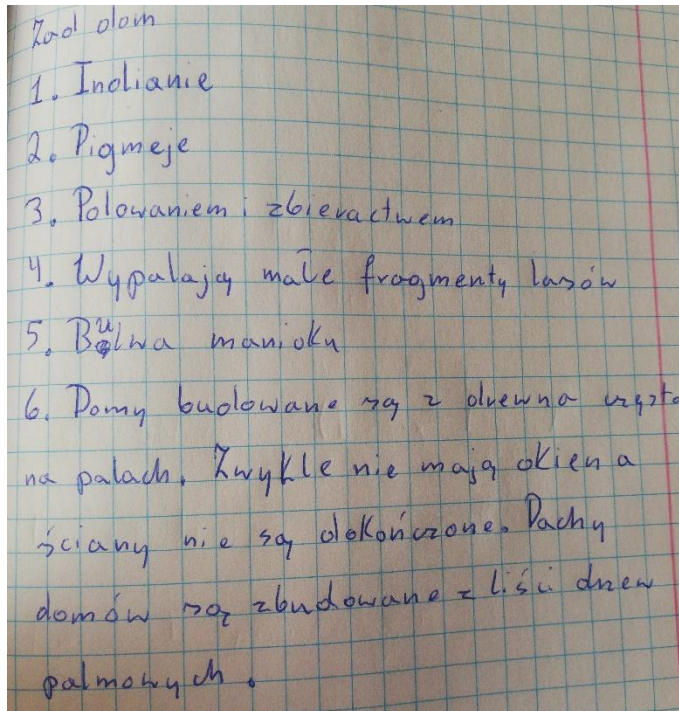 Zad dom
1. Indianie
2. Pigmeje
3. Polowaniem i zbieractwem
4. Wypalają małe fragmenty lasów
5. Bulwa manioku
6. Domy budowane są z drewna często
na palach. Zwykle nie mają okien a
ściany nie są dokończone. Dachy
domów są zbudowane z liści drzew
palmowych.